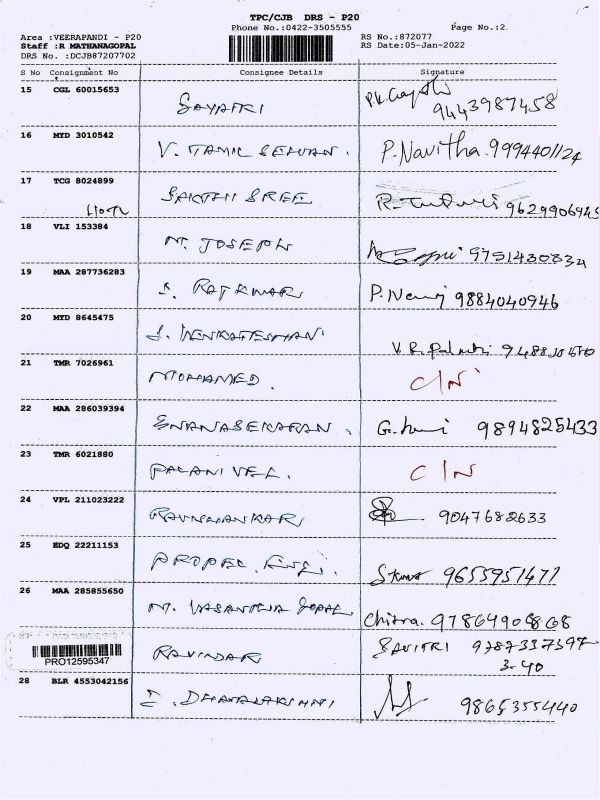 TPC/CJB DRS - P20
Phone No.:0422-3505555 Page No.:2
Area :VEERAPANDI - P20 RS No.:872077
Staff :R MATHANAGOPAL RS Date:05-Jan-2022
DRS No. :DCJB87207702
S No Consignment No Consignee Details Signature
15 CGL 60015653
GAYATRI 9443987458
16 MYD 3010542
V. TAMIL SELVAN. P. Navitha. 9994401124
17 TCG 8024899
SAKTHI SREE 9629906945
18 VLI 153384
M. JOSEPH 9751430834
19 MAA 287736283
S. RAJKUMAR 9884040946
20 MYD 8645475
VENKATESHAN
21 TMR 7026961
MOHAMED. C/N
22 MAA 286039394
GNANASEKARAN. 9894825433
23 TMR 6021880
PALANIVEL. C/N
24 VPL 211023222
RAVISHANKAR 9047682633
25 EDQ 22211153
PROPEL 9655951471
26 MAA 285855650
M. VASANTHA GOPAL Chitra.
27
RAVINDAR SAVITRI 9787337597
PRO12595347 3-40
28 BLR 4553042156
DHANALAKSHMI 9865355440